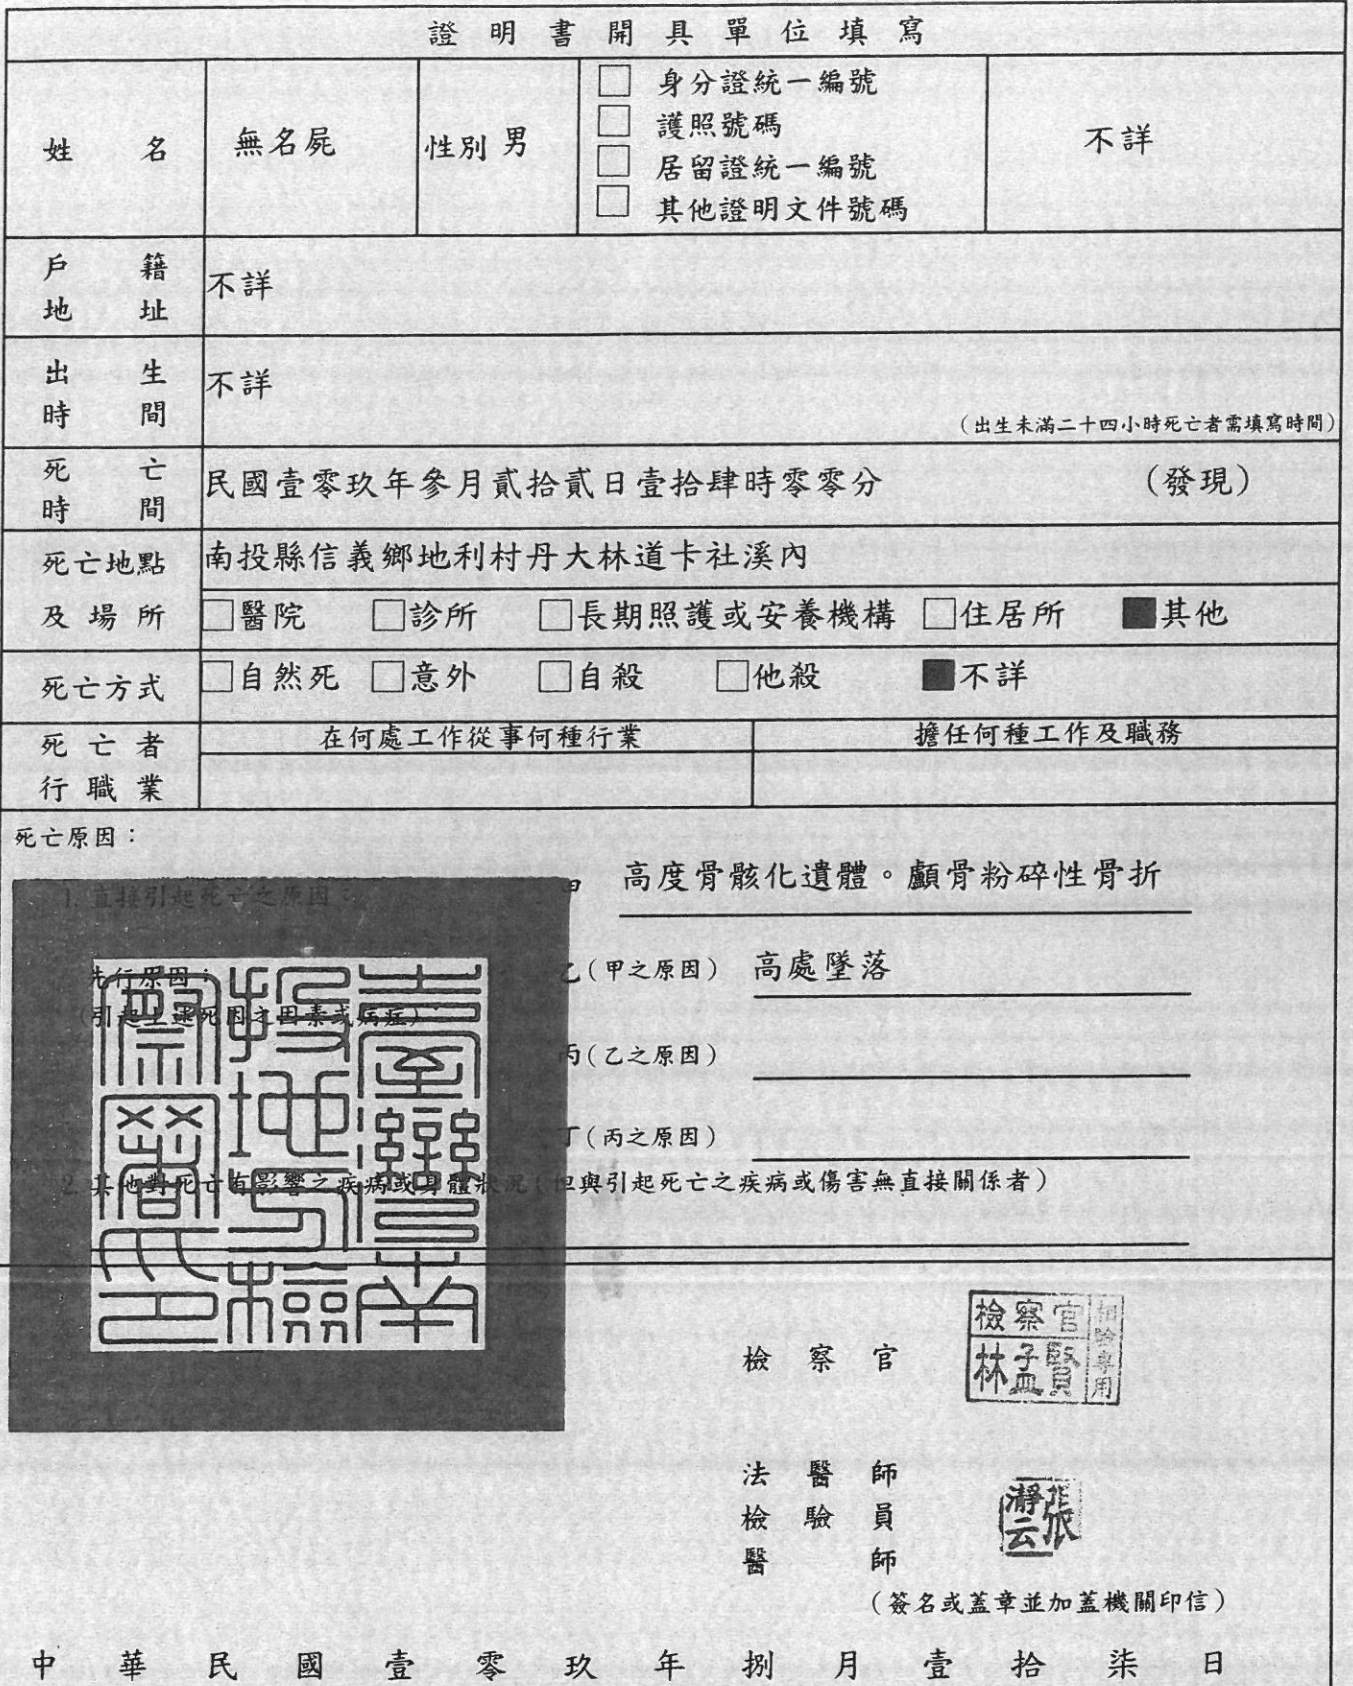 證明書開具單位填寫
姓名 無名屍 性別 男 □ 身分證統一編號
□ 護照號碼
□ 居留證統一編號
□ 其他證明文件號碼
不詳
戶籍地址 不詳
出生時間 不詳
(出生未滿二十四小時死亡者需填寫時間)
死亡時間 民國壹零玖年參月貳拾貳日壹拾肆時零零分 (發現)
死亡地點及場所 南投縣信義鄉地利村丹大林道卡社溪內
□醫院 □診所 □長期照護或安養機構 □住居所 ■其他
死亡方式 □自然死 □意外 □自殺 □他殺 ■不詳
死亡者行職業 在何處工作從事何種行業 擔任何種工作及職務
死亡原因：
1. 直接引起死亡之原因： 甲 高度骨骸化遺體。顱骨粉碎性骨折
先行原因： 乙(甲之原因) 高處墜落
(引起上述死因之因素或病症)
丙(乙之原因)
丁(丙之原因)
2. 其他對死亡有影響之疾病或身體狀況(但與引起死亡之疾病或傷害無直接關係者)
臺灣南投地方檢察署印
檢察官 檢察官 林孟賢 相驗專用
法醫師
檢驗員 張瀞云
醫師
(簽名或蓋章並加蓋機關印信)
中華民國壹零玖年捌月壹拾柒日